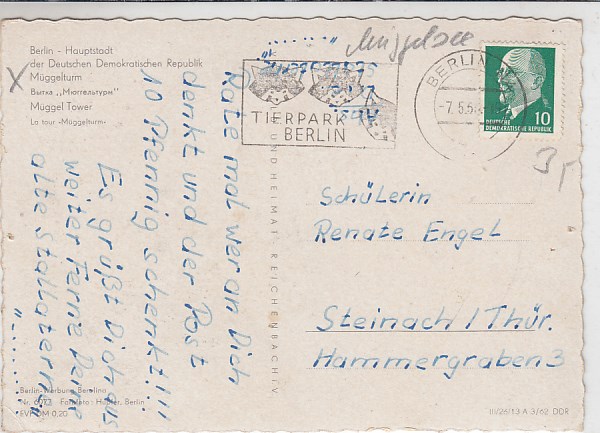 Berlin - Hauptstadt
der Deutschen Demokratischen Republik
Müggelturm
Вытка „Мюггельтурм"
Müggel Tower
La tour «Müggelturm»
Müggelsee
TIERPARK
BERLIN
BERLIN
-7.5.6
DEUTSCHE
DEMOKRATISCHE REPUBLIK
10
3,-
Rate mal wer an Dich
denkt und der Post
10 Pfennig schenkt!!!
Es grüßt Dich aus
weiter Ferne Deine
alte Stallaterne
UND HEIMAT REICHENBACH I V
Schülerin
Renate Engel
Steinach / Thür.
Hammergraben 3
Berlin-Werbung Berolina
Nr. 6073 Farbfoto: Berlin
EVP DM 0,20
III/26/13 A 3/62 DDR